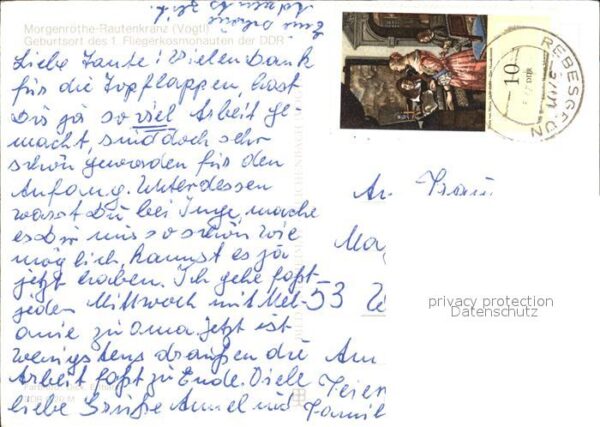 Morgenröthe-Rautenkranz (Vogtl)
Geburtsort des 1. Fliegerkosmonauten der DDR
Liebe Tante! Vielen Dank
für die Topflappen, hast
Du ja so viel Arbeit ge-
macht, sind doch sehr
schön geworden für den
Anfang. Unterdessen
warst Du bei Inge, mache
es Dir nur so schön wie
möglich, kannst es ja
jetzt haben. Ich gehe fast
jeden Mittwoch mit Mel-
anie zu Oma. Jetzt ist
wenigstens draußen die
Arbeit fast zu Ende. Viele
liebe Grüße Annel und Famil
An Frau
53
Am
10
DDR
REBESGRÜN
privacy protection
Datenschutz